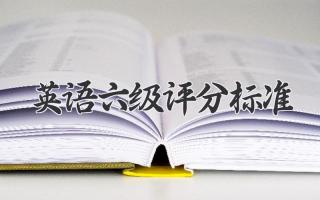 英语六级评分标准